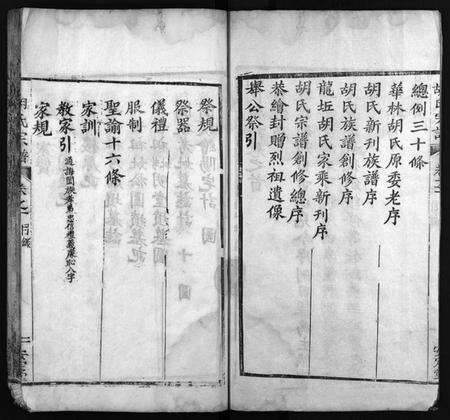 總例三十條
華林胡氏原委老序
胡氏新刊族譜序
胡氏族譜創修序
龍坵胡氏家乘新刊序
胡氏宗譜創修總序
恭繪封贈烈祖遺像
舉公祭引
祭規
祭器
儀禮
服制
聖諭十六條
家訓
教家引 孝弟忠信禮義廉恥八字
家規
胡氏宗譜 卷之